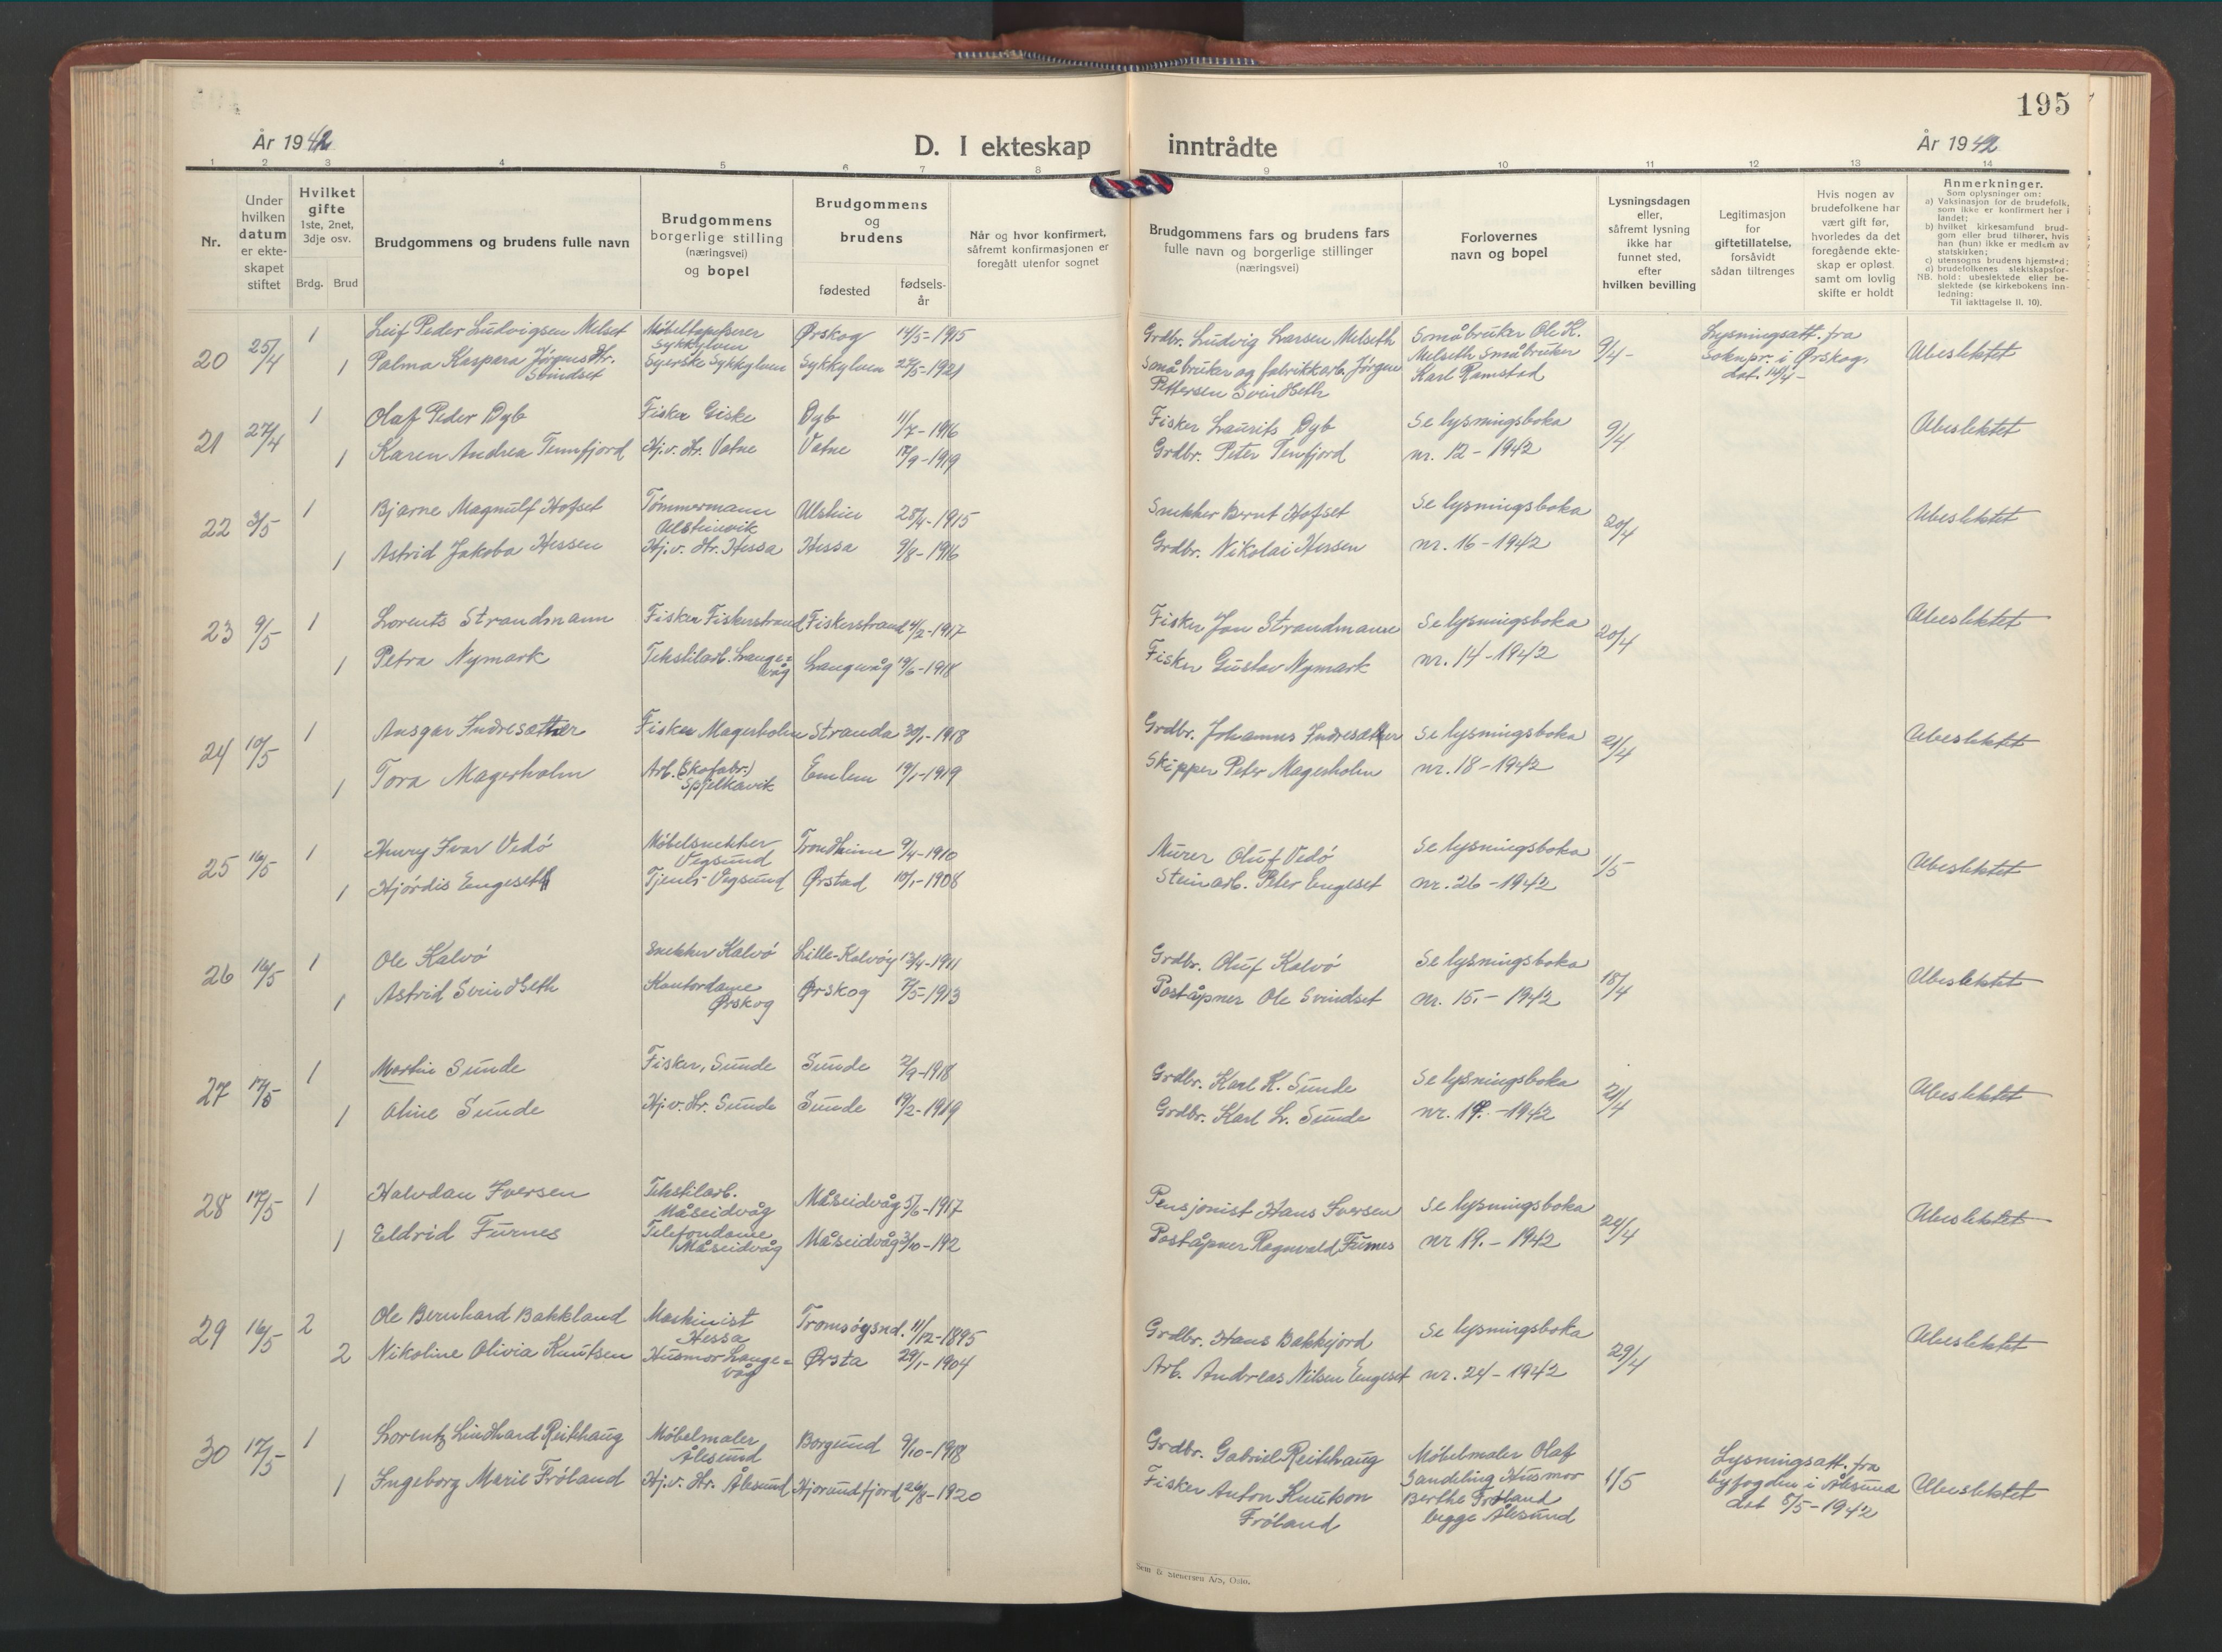 195
År 1942
D. I ekteskap inntrådte
År 1942
1 2 3 4 5 6 7 8 9 10 11 12 13 14
Nr.
Under
hvilken
datum
er ekte-
skapet
stiftet
Hvilket
gifte
1ste, 2net,
3dje osv.
Brdg. Brud
Brudgommens og brudens fulle navn
Brudgommens
borgerlige stilling
(næringsvei)
og bopel
Brudgommens
og
brudens
fødested
fødsels-
år
Når og hvor konfirmert,
såfremt konfirmasjonen er
foregått utenfor sognet
Brudgommens fars og brudens fars
fulle navn og borgerlige stillinger
(næringsvei)
Forlovernes
navn og bopel
Lysningsdagen
eller,
såfremt lysning
ikke har
funnet sted,
efter
hvilken bevilling
Legitimasjon
for
giftetillatelse,
forsåvidt
sådan tiltrenges
Hvis nogen av
brudefolkene har
vært gift før,
hvorledes da det
foregående ekte-
skap er opløst.
samt om lovlig
skifte er holdt
Anmerkninger.
Som oplysninger om:
a) Vaksinasjon for de brudefolk,
som ikke er konfirmert her i
landet;
b) hvilket kirkesamfund brud-
gom eller brud tilhører, hvis
han (hun) ikke er medlem av
statskirken;
c) utensogns brudens hjemsted;
d) brudefolkenes slektskapsfor-
NB. hold: ubeslektede eller be-
slektede (se kirkebokens inn-
ledning:
Til iakttagelse II. 10).
20 25/4 1 Leif Peder Ludvigsen Melset Møbeltapetserer Sykkylven Ørskog 14/5-1915 Grdbr. Ludvig Larsen Melseth Småbruker Ole K.
1 Palma Kaspara Jørgensdtr. Svindset Syerske Sykkylven Sykkylven 27/5-1921 Småbruker og fabrikkarb. Jørgen Pettersen Svindseth Melseth Småbruker Karl Ramstad 9/4- Lysningsatt. fra
Soknpr. i Ørskog,
dat. 14/4-
Ubeslektet
21 27/4 1 Olaf Peder Dyb Fisker Giske Dyb 11/7-1916 Fisker Laurits Dyb Se lysningsboka 9/4 Ubeslektet
1 Karen Andrea Tennfjord Hj.v. Dtr. Vatne Vatne 17/9-1919 Grdbr. Peter Tenfjord nr. 12-1942
22 3/5 1 Bjarne Magnulf Hofset Tømmermann Ulsteinvik Ulstein 28/4-1915 Snekker Bernt Hofset Se lysningsboka 20/4 Ubeslektet
1 Astrid Jakoba Hessen Hj.v. Dtr. Hessa Hessa 9/8-1916 Grdbr. Nikolai Hessen nr. 16-1942
23 9/5 1 Lorents Strandmann Fisker Fiskerstrand Fiskerstrand 4/2-1917 Fisker Jon Strandmann Se lysningsboka 20/4 Ubeslektet
1 Petra Nymark Tekstilarb. Lange=våg Langevåg 19/6-1918 Fisker Gustav Nymark nr. 14-1942
24 10/5 1 Ansgar Indresæther Fisker Magerholm Stranda 30/1-1918 Grdbr. Johannes Indresæther Se lysningsboka 21/4 Ubeslektet
1 Tora Magerholm Arb. (Skofabr.) Spjelkavik Emlem 19/1-1919 Skipper Peter Magerholm nr. 18-1942
25 16/5 1 Henry Ivar Vedø Møbelsnekker Vegsund Trondheim 9/4-1910 Murer Oluf Vedø Se lysningsboka 1/5 Ubeslektet
1 Hjørdis Engeseth Tjener Vegsund Ørstad 10/1-1908 Steinarb. Peter Engeset nr. 26-1942
26 16/5 1 Ole Kalvø Snekker Kalvø Lille-Kalvøy 13/4-1911 Grdbr. Oluf Kalvø Se lysningsboka 18/4 Ubeslektet
1 Astrid Svindseth Kontordame Ørskog Ørskog 7/5-1913 Poståpner Ole Svindset nr. 15.-1942
27 17/5 1 Martin Sunde Fisker, Sunde Sunde 2/9-1918 Grdbr. Karl K. Sunde Se lysningsboka 21/4 Ubeslektet
1 Oline Sunde Hj.v. Dtr. Sunde Sunde 19/2-1919 Grdbr. Karl L. Sunde nr. 17.-1942
28 17/5 1 Halvdan Iversen Tekstilarb. Måseidvåg Måseidvåg 5/6-1917 Pensjonist Hans Iversen Se lysningsboka 24/4 Ubeslektet
1 Eldrid Furnes Telefondame Måseidvåg Måseidvåg 3/10-192 Poståpner Ragnvald Furnes nr 19.-1942
29 16/5 2 Ole Bernhard Bakkland Maskinist Hessa Tromsøysnd. 11/12-1895 Grdbr. Hans Bakkejord Se lysningsboka 29/4 Ubeslektet
2 Nikoline Olivia Knutsen Husmor Lange=våg Ørsta 29/1-1904 Arb. Andreas Nilsen Engeset nr. 24-1942
30 17/5 1 Lorentz Lindhard Reithaug Møbelmaler Ålesund Borgund 9/10-1918 Grdbr. Gabriel Reithaug Møbelmaler Olaf
1 Ingeborg Marie Frøland Hj.v. Dtr. Ålesund Hjørundfjord 26/8-1920 Fisker Anton Knutson Frøland Sandeling Husmor
Berthe Frøland
begge Ålesund
1/5 Lysningsatt. fra
byfogden i Ålesund
dat 8/5-1942
Ubeslektet
Sem & Stenersen A/S, Oslo.